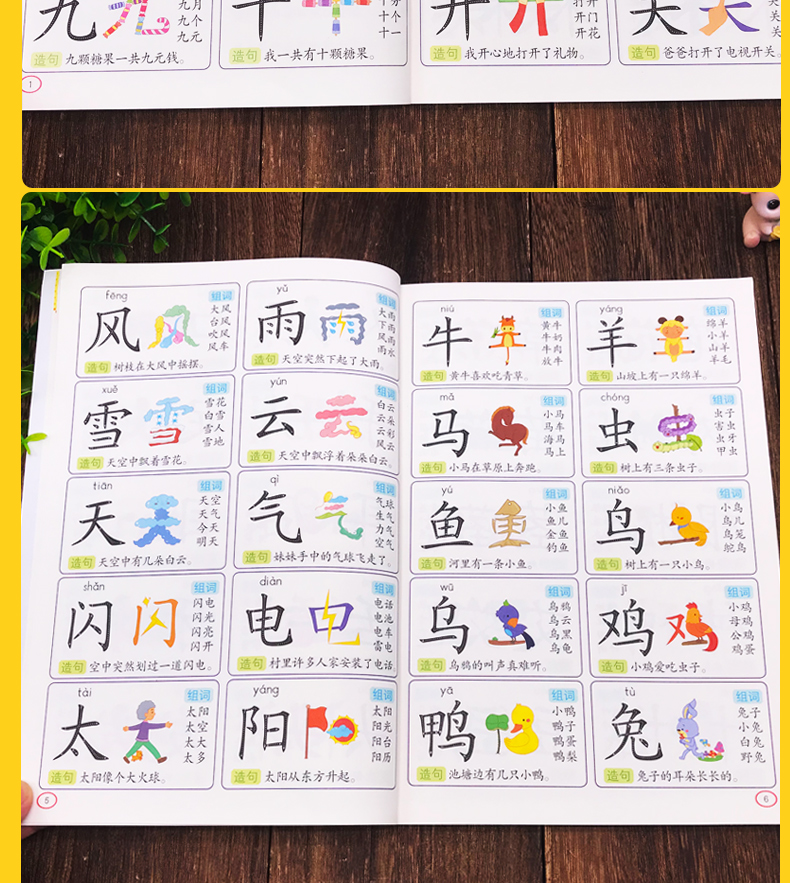 九
九月
九个
九元
造句 九颗糖果一共九元钱。
十
十个
十一
造句 我一共有十颗糖果。
1
开
打开
开门
开花
造句 我开心地打开了礼物。
关
造句 爸爸打开了电视开关。
fēng
风
组词
大风
台风
吹风
风车
造句 树枝在大风中摇摆。
yǔ
雨
组词
大雨
下雨
风雨
雨水
造句 天空突然下起了大雨。
xuě
雪
组词
雪花
白雪
雪人
雪地
造句 天空中飘着雪花。
yún
云
组词
白云
云朵
云彩
风云
造句 天空中飘浮着朵朵白云。
tiān
天
组词
天空
天气
今天
明天
造句 天空中有几朵白云。
qì
气
组词
气球
生气
力气
空气
造句 妹妹手中的气球飞走了。
shǎn
闪
组词
闪电
闪光
闪亮
闪开
造句 空中突然划过一道闪电。
diàn
电
组词
电话
电池
电车
雷电
造句 村里许多人家安装了电话。
tài
太
组词
太阳
太空
太大
太多
造句 太阳像个大火球。
yáng
阳
组词
太阳
阳光
阳台
阳历
造句 太阳从东方升起。
5
niú
牛
组词
黄牛
牛奶
牛肉
放牛
造句 黄牛喜欢吃青草。
yáng
羊
组词
绵羊
小羊
山羊
羊毛
造句 山坡上有一只绵羊。
mǎ
马
组词
小马
马车
海马
马上
造句 小马在草原上奔跑。
chóng
虫
组词
虫子
害虫
虫牙
甲虫
造句 树上有三条虫子。
yú
鱼
组词
小鱼
鱼儿
金鱼
钓鱼
造句 河里有一条小鱼。
niǎo
鸟
组词
小鸟
鸟儿
鸟笼
鸵鸟
造句 树上有一只小鸟。
wū
乌
组词
乌鸦
乌云
乌黑
乌龟
造句 乌鸦的叫声真难听。
jī
鸡
组词
小鸡
母鸡
公鸡
鸡蛋
造句 小鸡爱吃虫子。
yā
鸭
组词
小鸭
鸭子
鸭蛋
鸭梨
造句 池塘边有几只小鸭。
tù
兔
组词
兔子
小兔
白兔
野兔
造句 兔子的耳朵长长的。
6